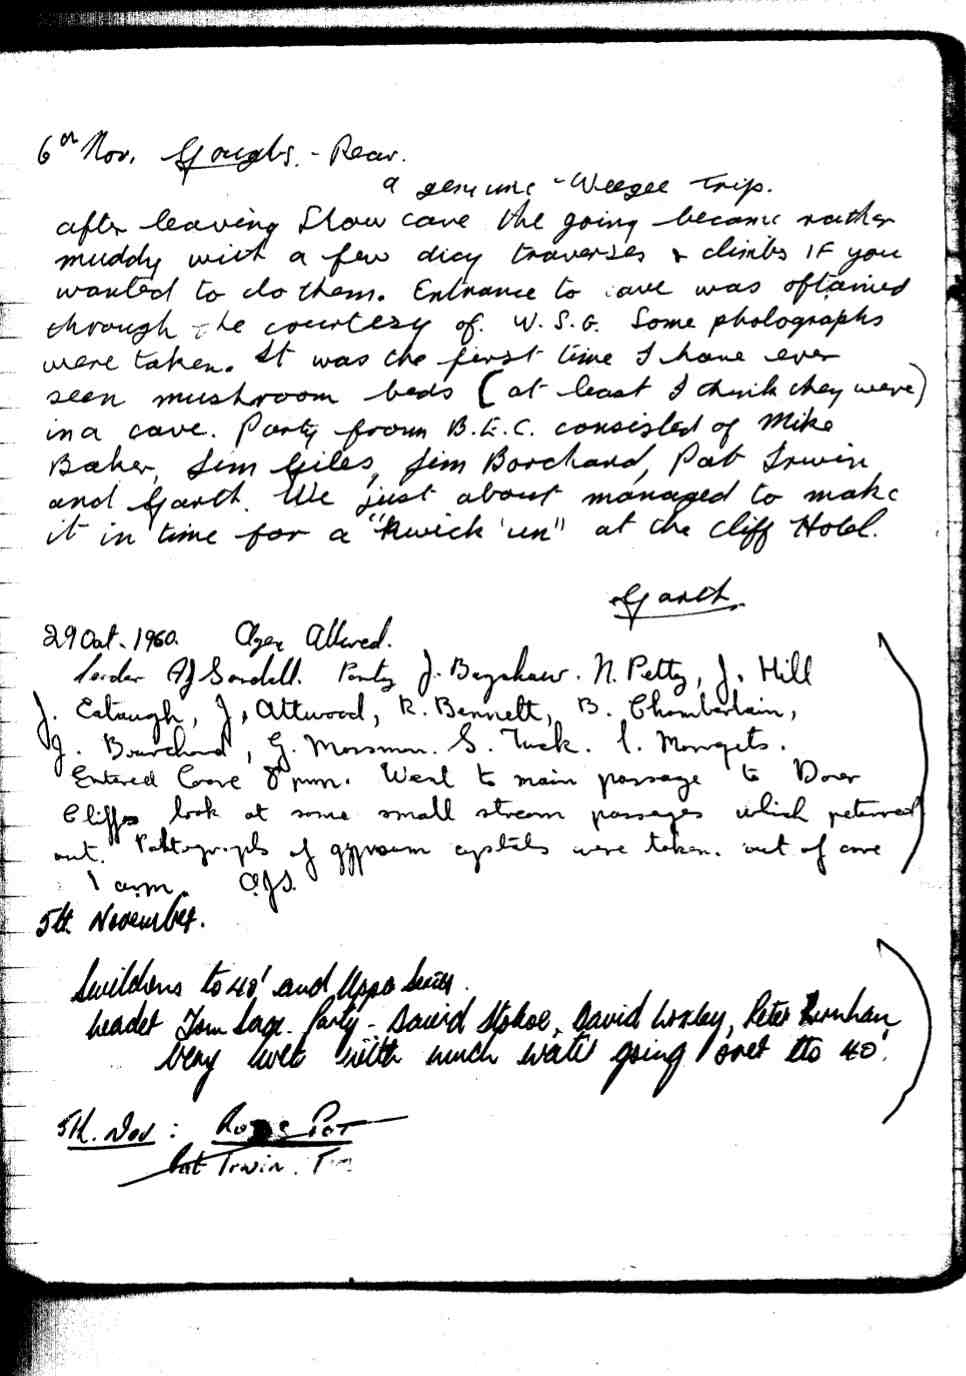 6th Nov. Goughs. - Rear.
a genuine - Weegee Trip.
after leaving Show cave the going became rather
muddy with a few dicy traverses & climbs IF you
wanted to do them. Entrance to cave was obtained
through the courtesy of W.S.G. Some photographs
were taken. It was the first time I have ever
seen mushroom beds (at least I think they were)
in a cave. Party from B.E.C. consisted of Mike
Baker, Jim Giles, Jim Borchard, Pat Irwin
and Garth. We just about managed to make
it in time for a "kwick 'un" at the Cliff Hotel.
Garth.
29 Oct. 1960. Agen Allwed.
Leader AJ Sandell. Party J. Bagshaw. N. Petty, J. Hill
J. Eatough, J. Attwood, R. Bennett, B. Chamberlain,
J. Bourchard, G. Mossman. S. Tuck.
Entered Cave 8 pm. Went to main passage to Dover
Cliffs look at some small stream passages which petered
out. Photographs of gypsum crystals were taken. out of cave
1 am. AJS.
5th November.
Swildons to 40' and Upper Series.
Leader Tom Sage. Party - David Stokoe, David Loxley, Peter
Very wet with much water going over the 40'.
5th. Nov: Pot
Pat Irwin.